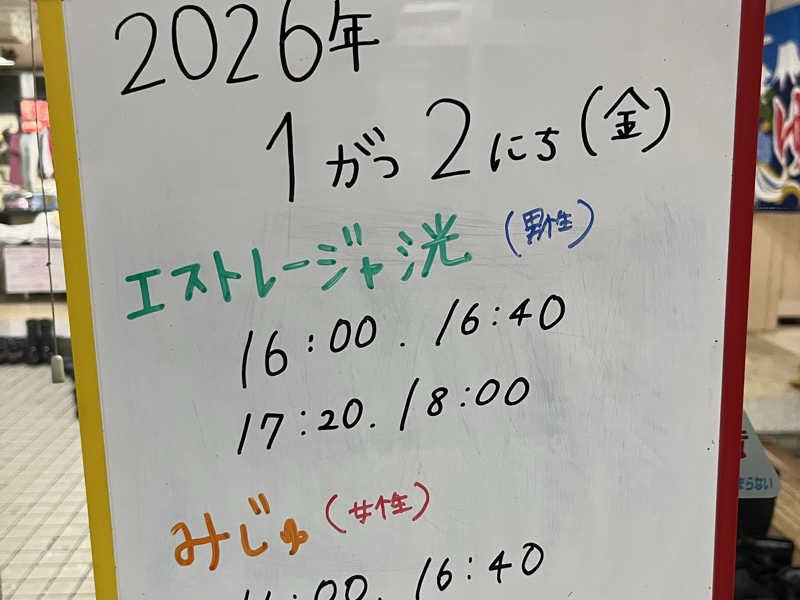 2026年
1がつ2にち(金)
エストレージャ洸(男性)
16:00. 16:40
17:20. 18:00
みじゅ(女性)
:00 16:40
まらない